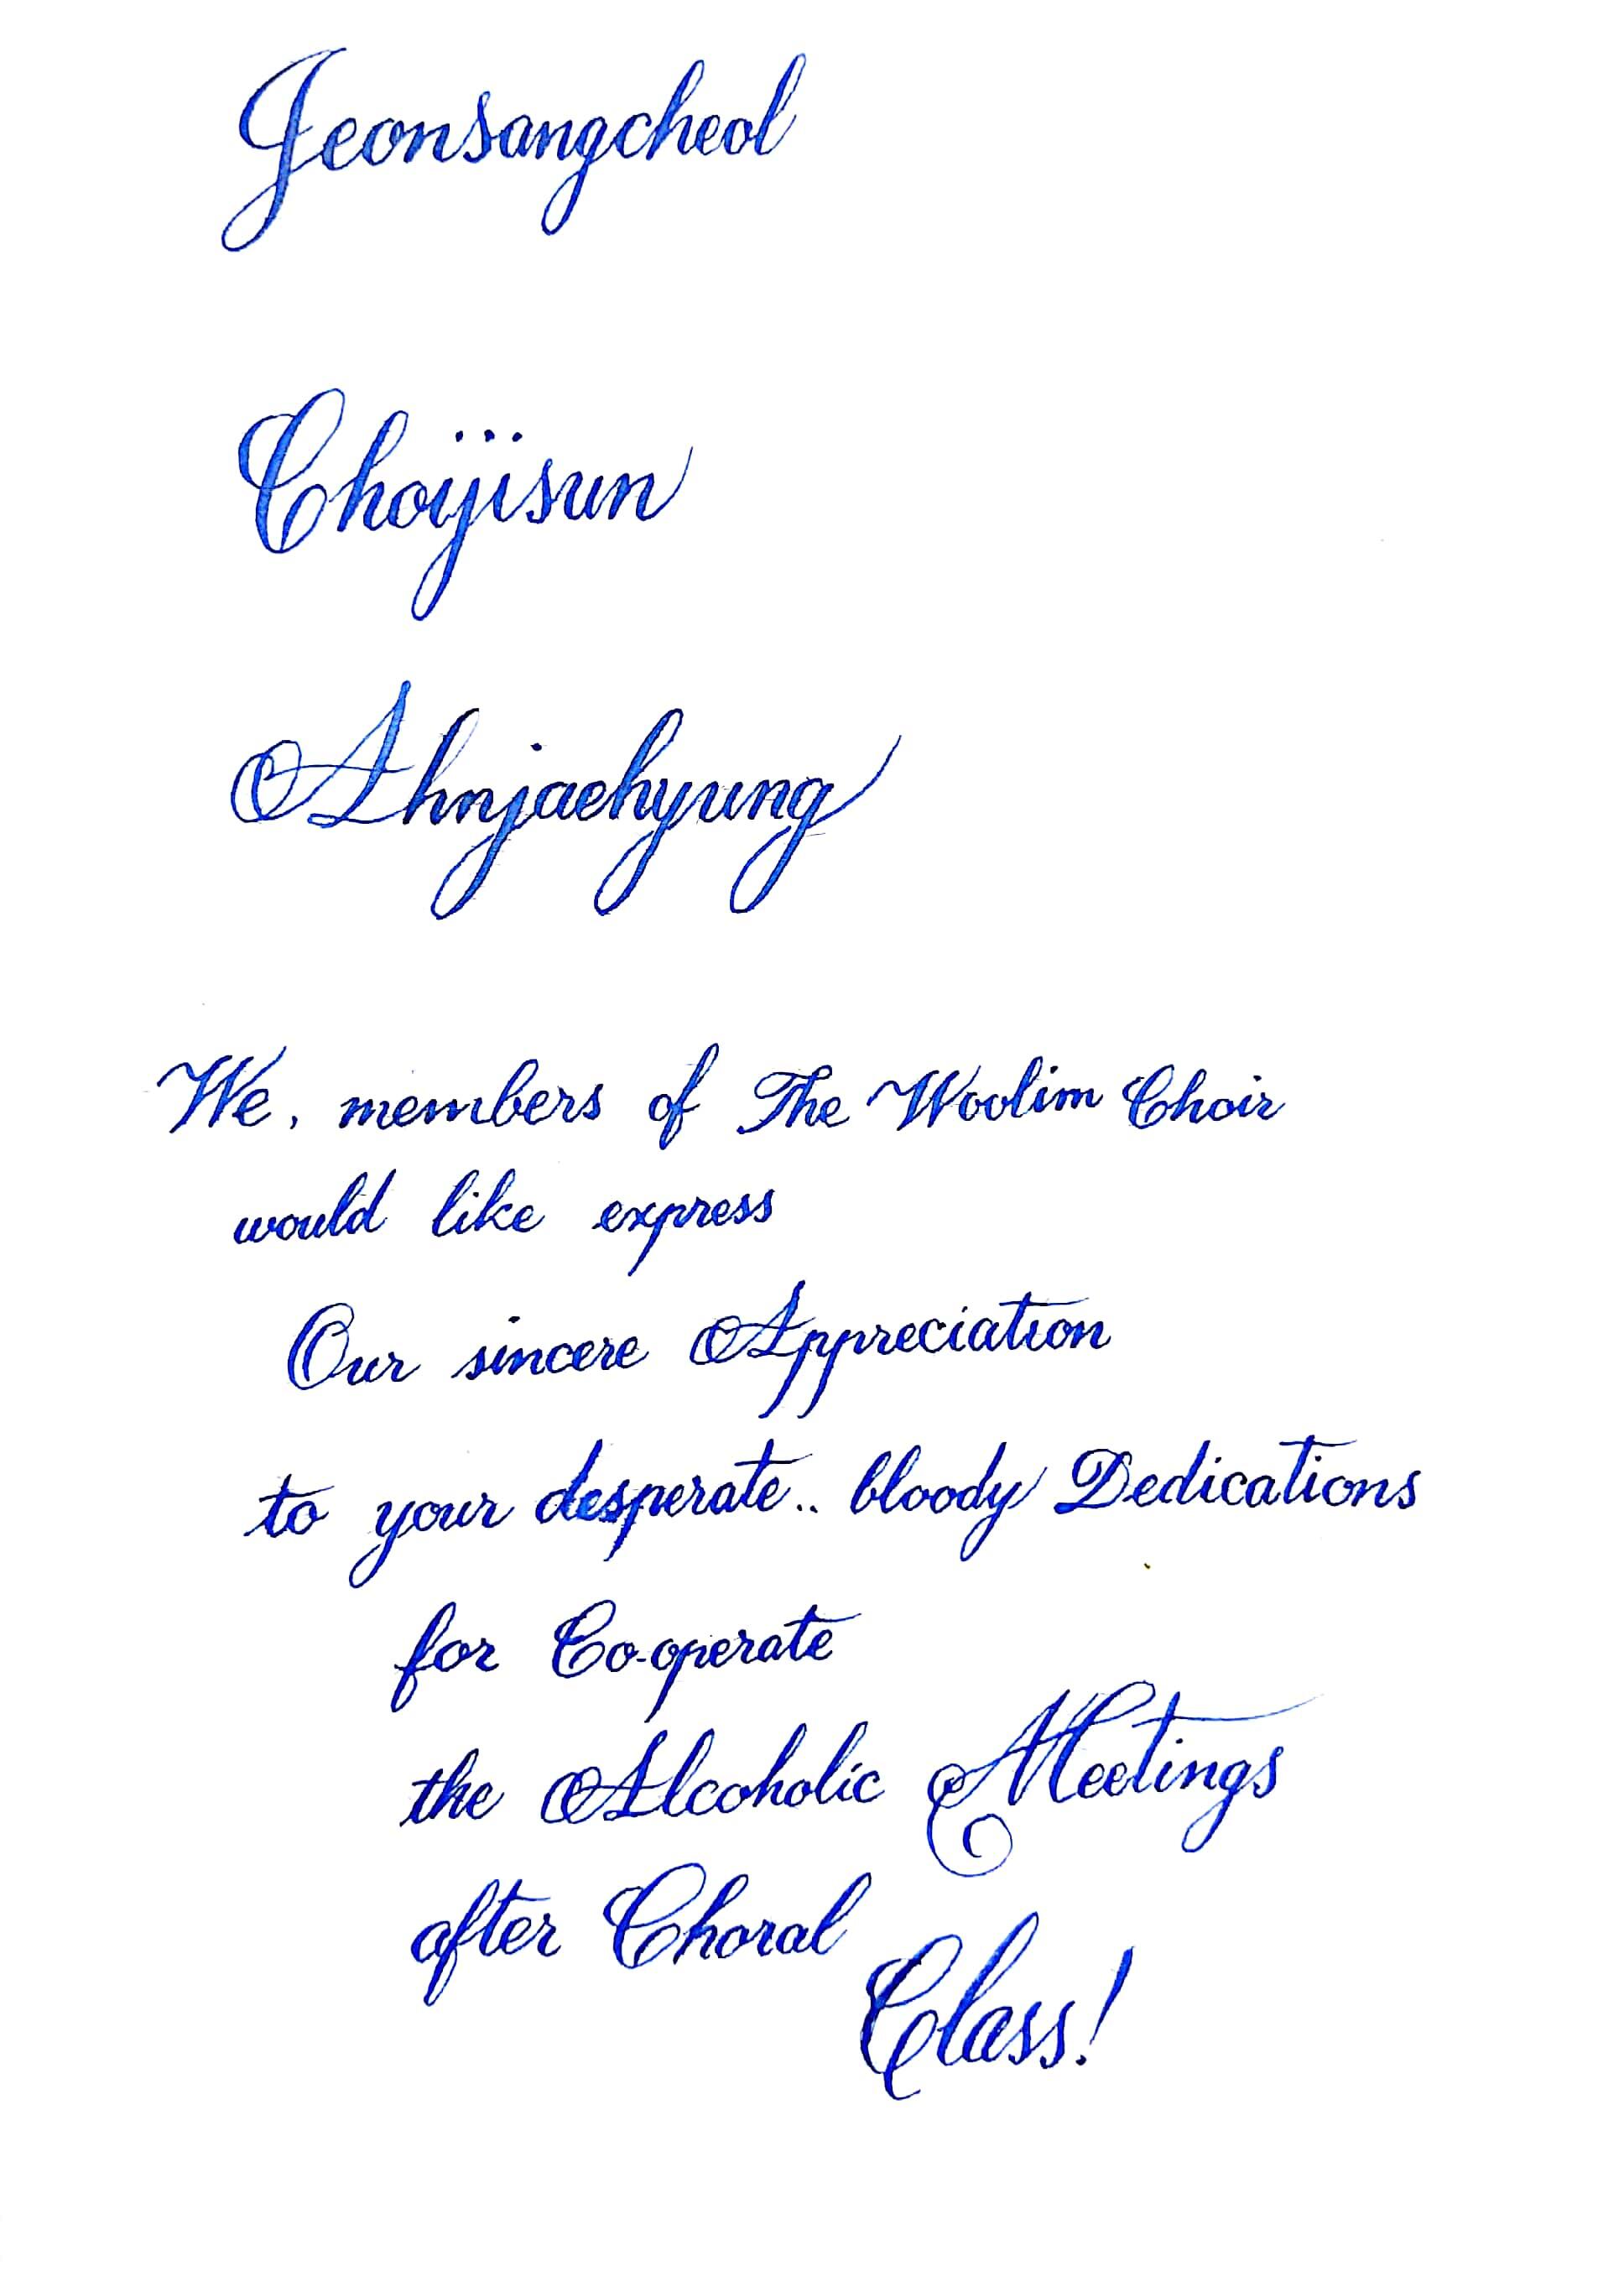 Jeonsangcheol
Choijisun
Ahnjaehyung
We, members of The Woolim Choir
would like express
Our sincere Appreciation
to your desperate.. bloody Dedications
for Co-operate
the Alcoholic Meetings
after Choral
Class!